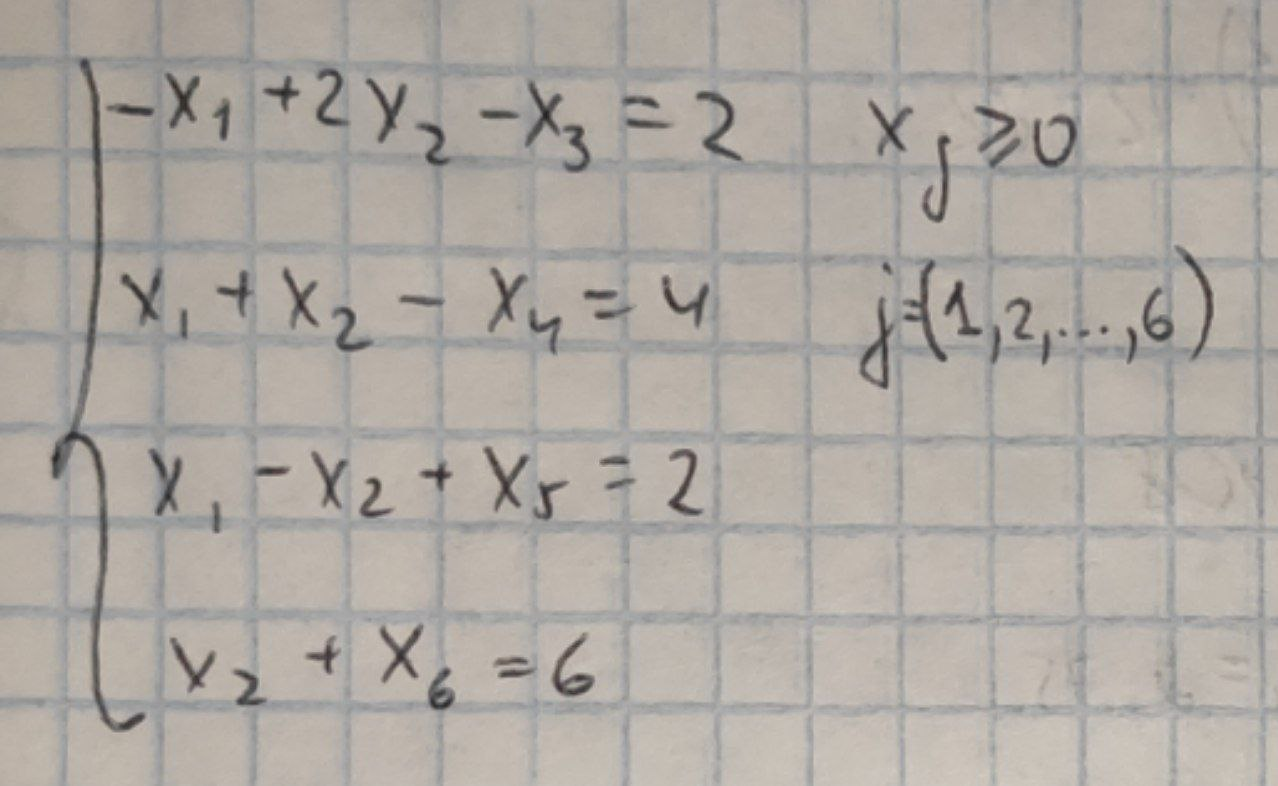 -x₁ + 2x₂ - x₃ = 2 xⱼ ⩾ 0
x₁ + x₂ - x₄ = 4 j=(1,2,...,6)
x₁ - x₂ + x₅ = 2
x₂ + x₆ = 6